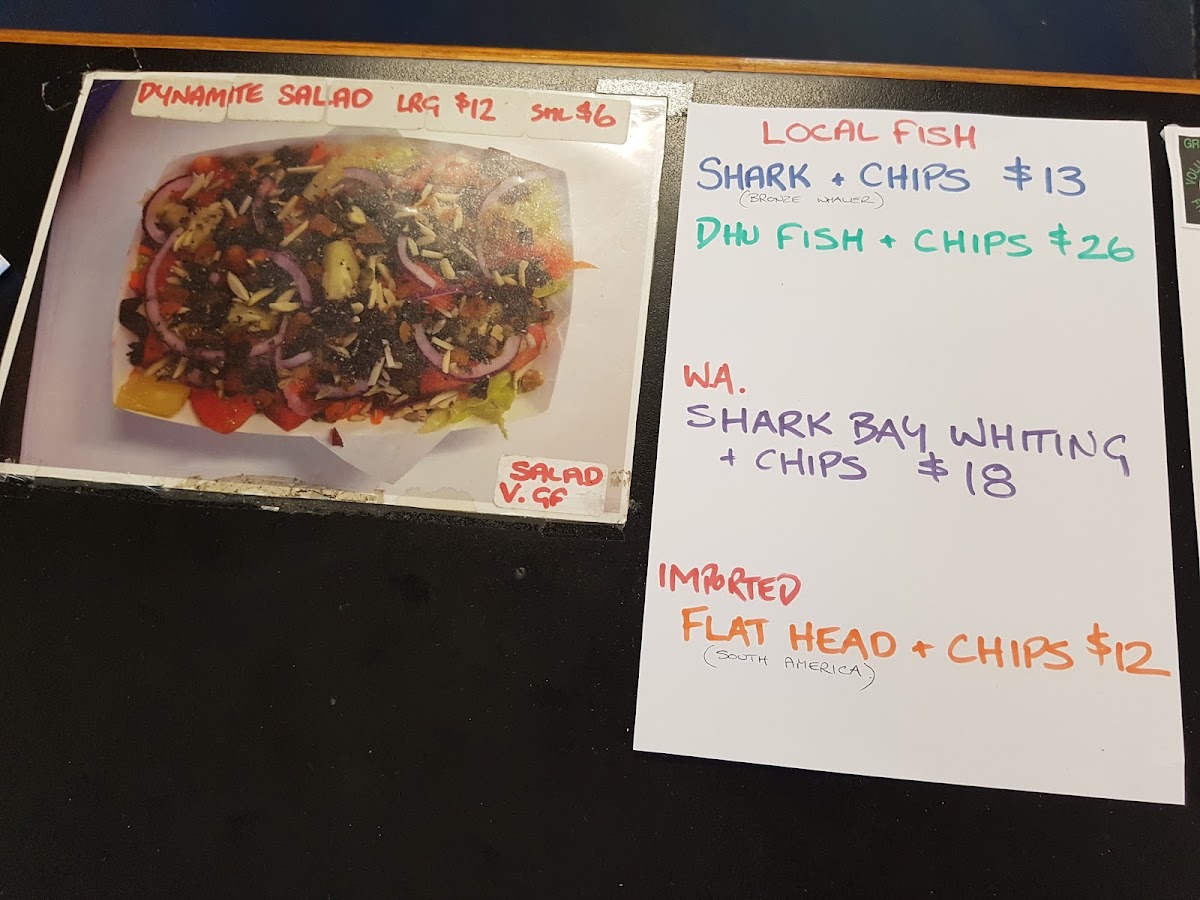 DYNAMITE SALAD LRG $12 SML $6
SALAD
V. GF
LOCAL FISH
SHARK + CHIPS $13
(BRONZE WHALER)
DHU FISH + CHIPS $26
W.A.
SHARK BAY WHITING
+ CHIPS $18
IMPORTED
FLAT HEAD + CHIPS $12
(SOUTH AMERICA)